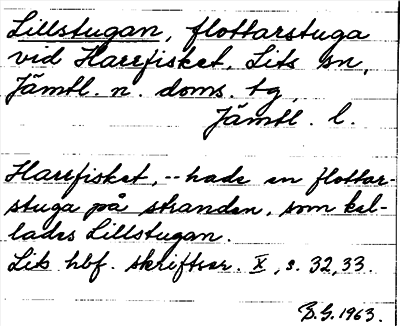 Lillstugan, flottarstuga
vid Harrfisket, Lits sn,
Jämtl. n. doms. tg,
Jämtl. l.
Harrfisket, -- hade en flottar-
stuga på stranden, som kal-
lades Lillstugan.
Lits hbf. skriftser. X, s. 32, 33.
B.G. 1963.